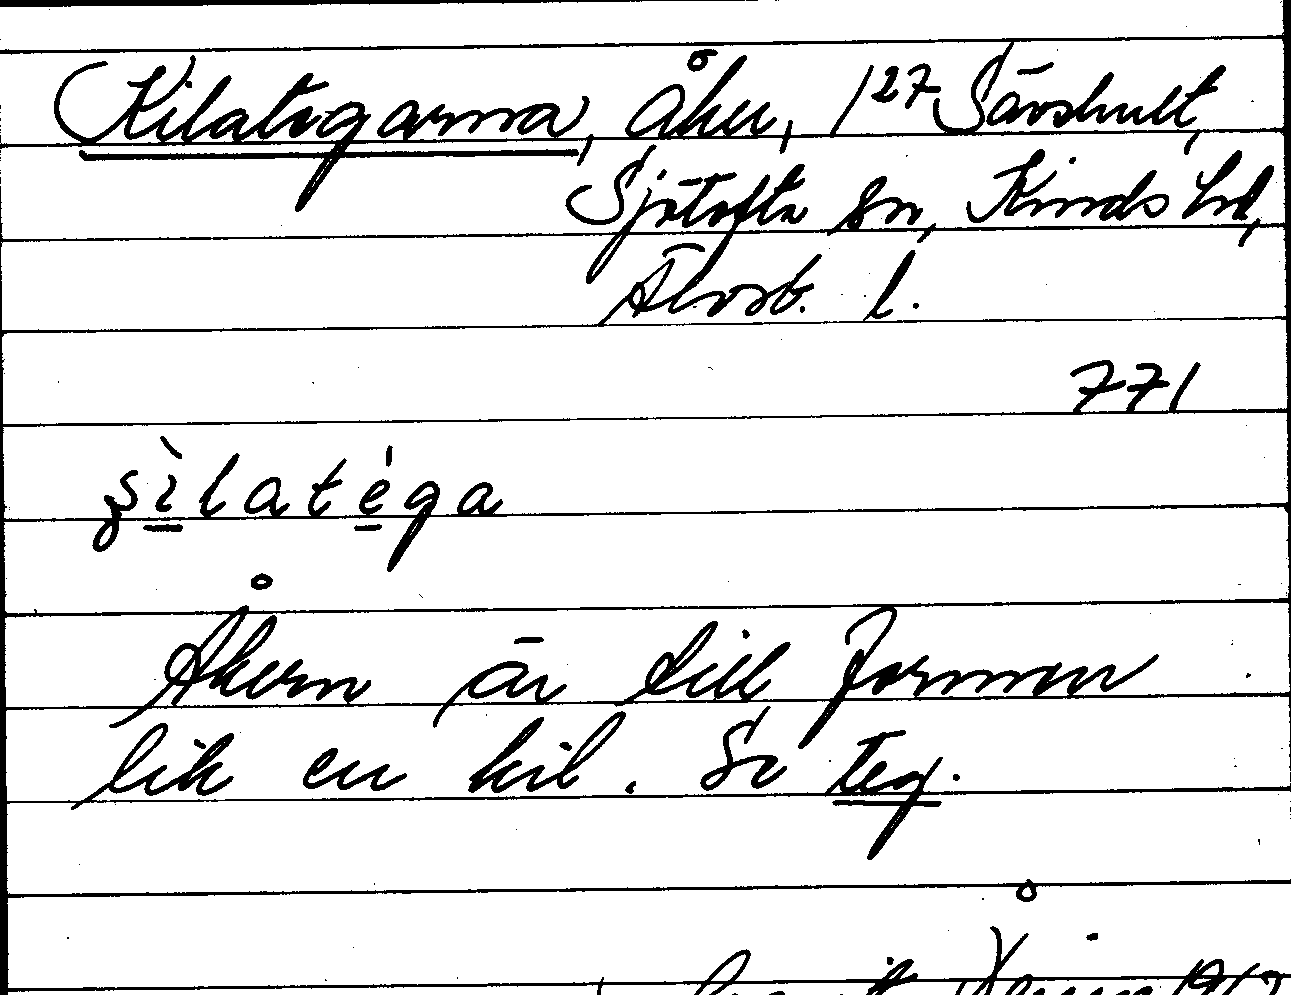 Kilategarna, åker, 1²⁷ Sävshult,
Sjötofta sn, Kinds hd,
Älvsb. l.
771
ʂìlatéga
Åkern är till formen
lik en kil. Se teg.